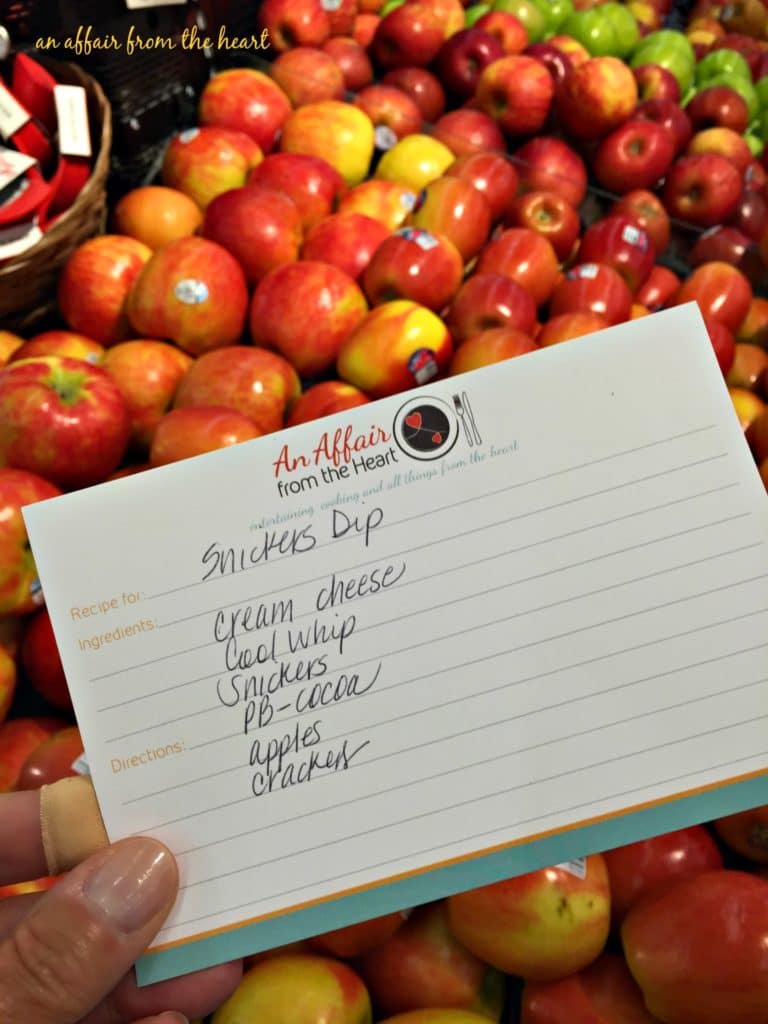 an affair from the heart
An Affair
from the Heart
entertaining, cooking and all things from the heart
Recipe for: Snickers Dip
Ingredients: cream cheese
Cool Whip
Snickers
PB-cocoa
Directions: apples
crackers